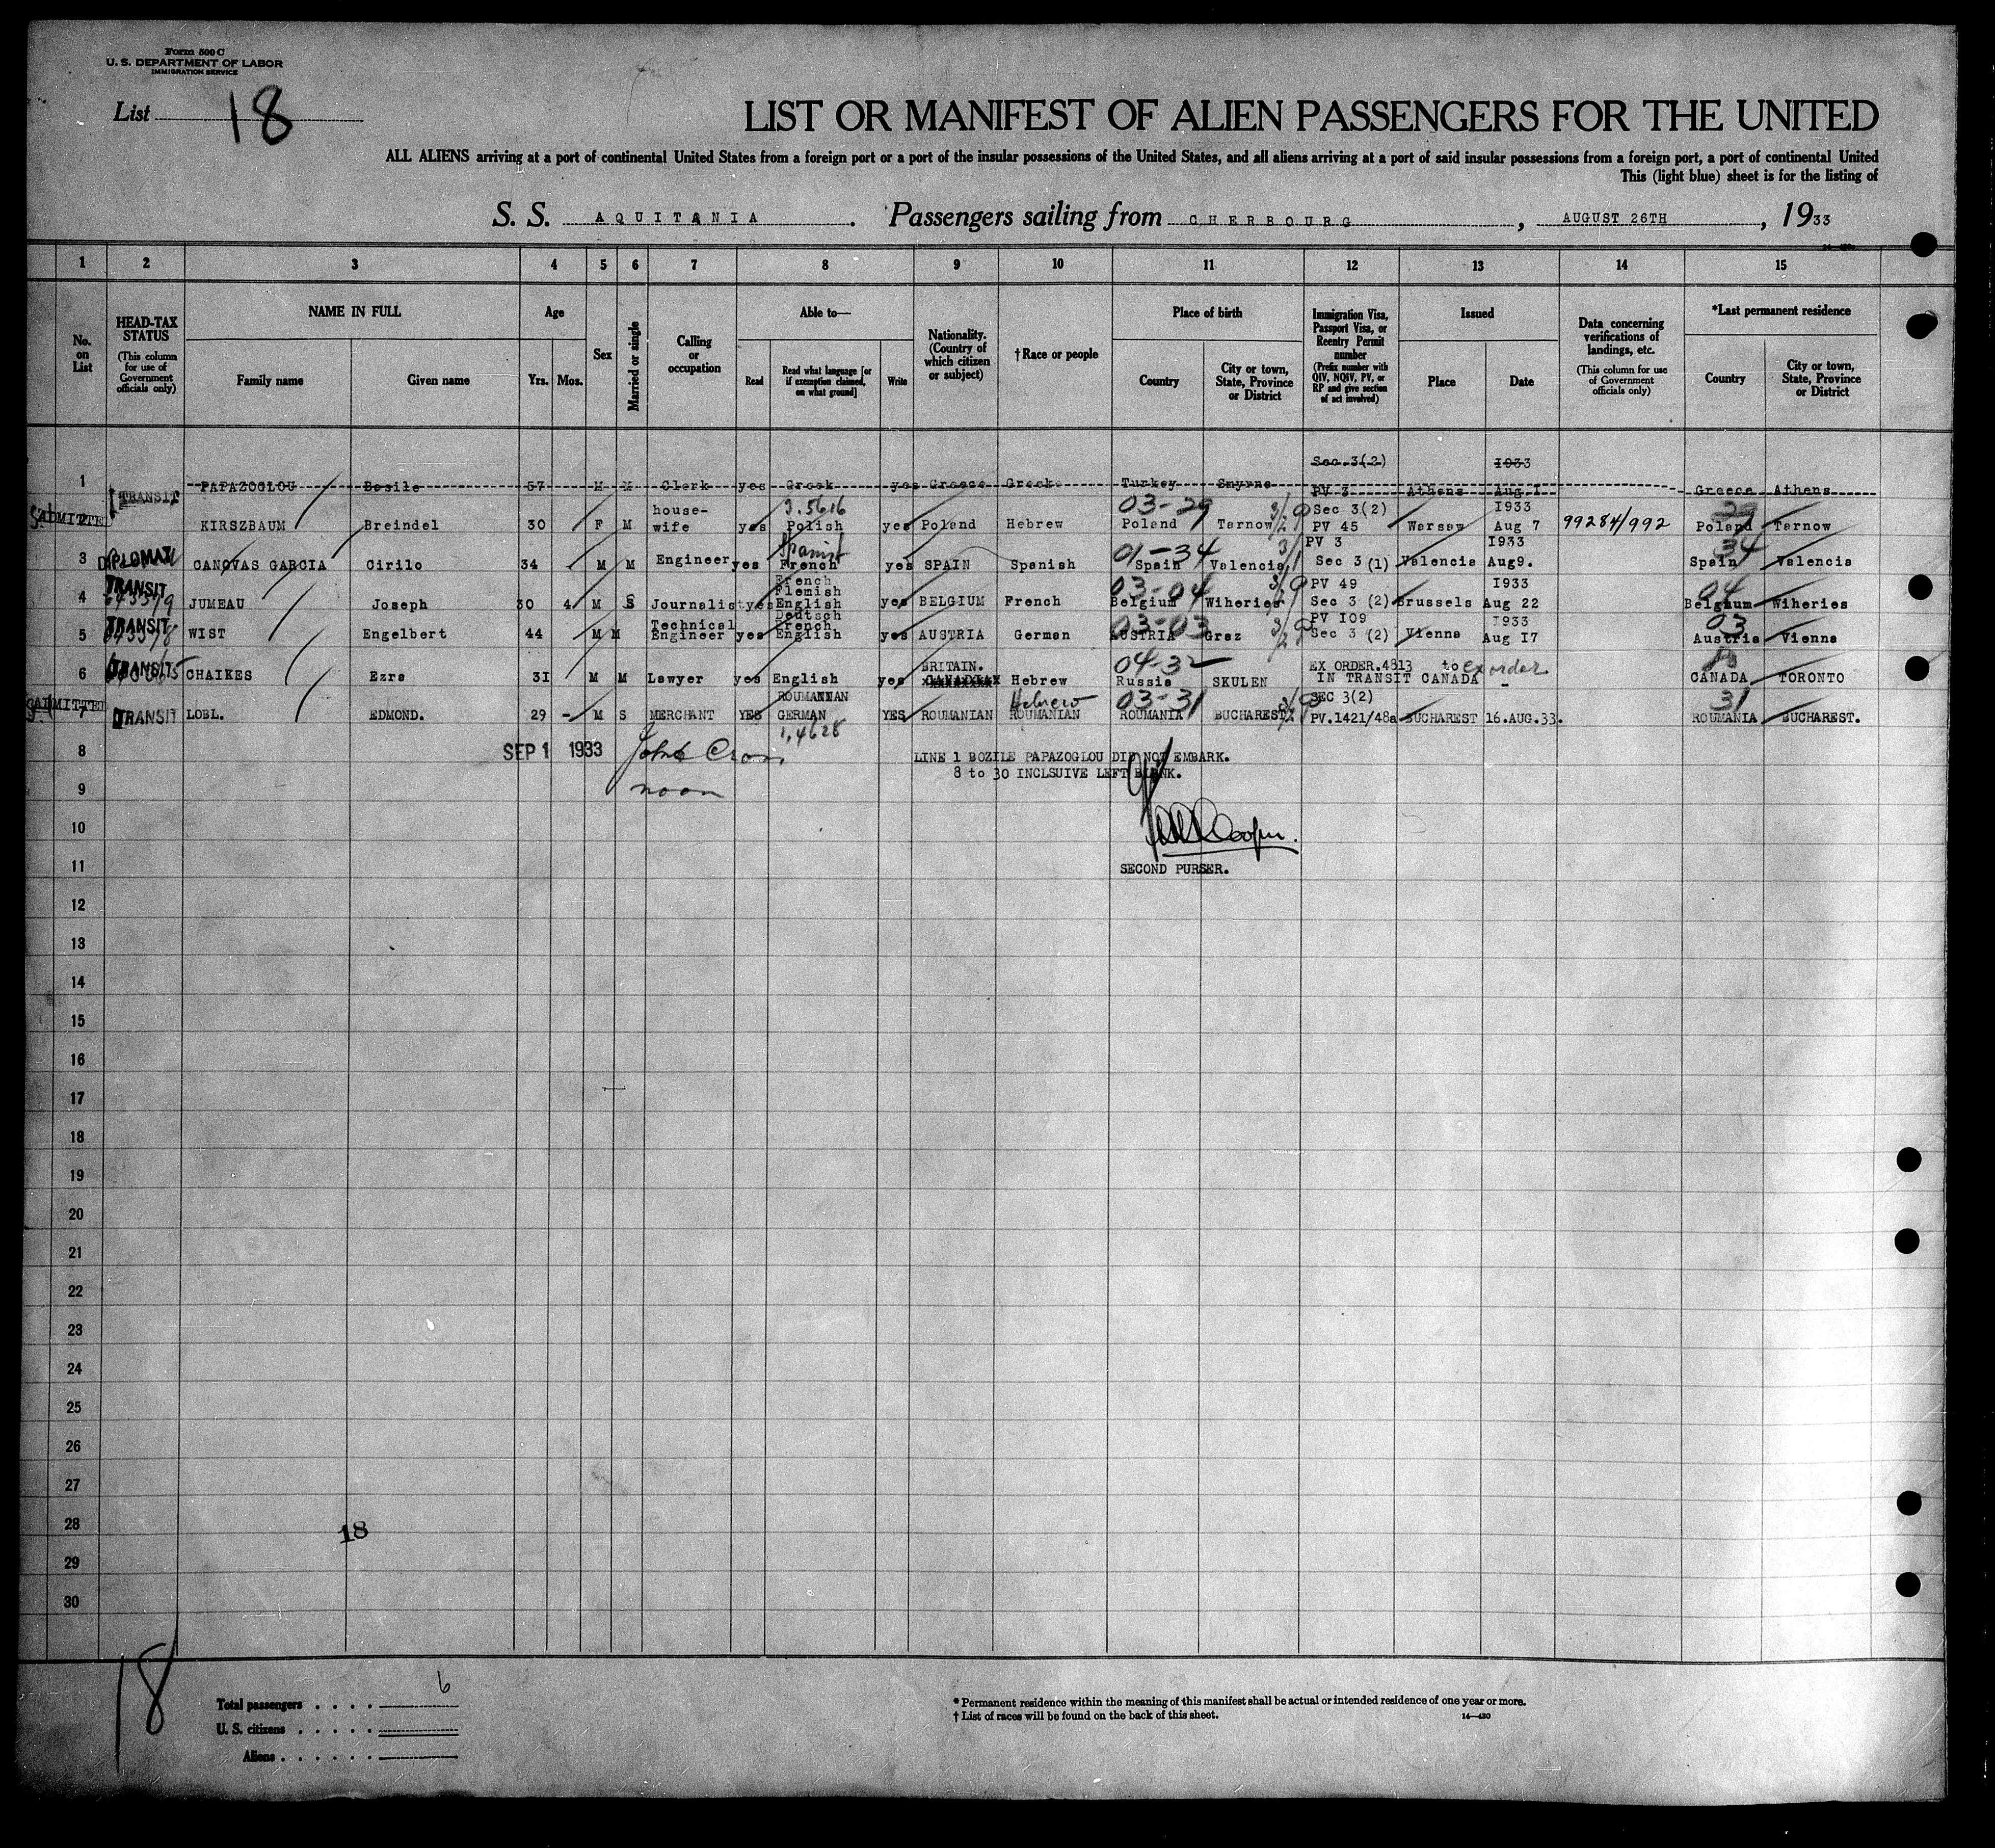 Form 500 C
U. S. DEPARTMENT OF LABOR
IMMIGRATION SERVICE
List 18
LIST OR MANIFEST OF ALIEN PASSENGERS FOR THE UNITED
ALL ALIENS arriving at a port of continental United States from a foreign port or a port of the insular possessions of the United States, and all aliens arriving at a port of said insular possessions from a foreign port, a port of continental United
This (light blue) sheet is for the listing of
S. S. AQUITANIA. Passengers sailing from CHERBOURG, AUGUST 26TH, 1933
1 2 3 4 5 6 7 8 9 10 11 12 13 14 15
No. on List
HEAD-TAX STATUS (This column for use of Government officials only)
NAME IN FULL
Family name Given name
Age
Yrs. Mos.
Sex
Married or single
Calling or occupation
Able to—
Read Read what language [or if exemption claimed, on what ground] Write
Nationality. (Country of which citizen or subject)
†Race or people
Place of birth
Country City or town, State, Province or District
Immigration Visa, Passport Visa, or Reentry Permit number (Prefix number with QIV, NQIV, PV, or RP and give section of act involved)
Issued
Place Date
Data concerning verifications of landings, etc. (This column for use of Government officials only)
*Last permanent residence
Country City or town, State, Province or District
Sec. 3(2) 1933
1 TRANSIT PAPAZOGLOU Basile 57 M M Clerk yes Greek yes Greece Greek Turkey Smyrna PV 3 Athens Aug I Greece Athens
ADMITTED house- 3.5616 03-29 Sec 3(2) I933 29
2 KIRSZBAUM Breindel 30 F M wife yes Polish yes Poland Hebrew Poland Tarnow PV 45 Warsaw Aug 7 99284/992 Poland Tarnow
Spanish 01-34 PV 3 I933 34
3 DIPLOMAT CANOVAS GARCIA Cirilo 34 M M Engineer yes French yes SPAIN Spanish Spain Valencia Sec 3 (1) Valencia Aug9. Spain Valencia
TRANSIT French Flemish 03-04 PV 49 I933 04
4 643579 JUMEAU Joseph 30 4 M S Journalist yes English yes BELGIUM French Belgium Wiheries Sec 3 (2) Brussels Aug 22 Belgium Wiheries
TRANSIT Technical Deutsch French 03-03 PV I09 I933 03
5 WIST Engelbert 44 M M Engineer yes English yes AUSTRIA German AUSTRIA Graz Sec 3 (2) Vienna Aug I7 Austria Vienna
TRANSIT BRITAIN. 04-32 EX ORDER.4813 to ex order
6 CHAIKES Ezra 3I M M Lawyer yes English yes CANADIAN Hebrew Russia SKULEN IN TRANSIT CANADA - CANADA TORONTO
ADMITTED ROUMANIAN Hebrew 03-31 SEC 3(2) 31
7 TRANSIT LOBL. EDMOND. 29 - M S MERCHANT YES GERMAN YES ROUMANIAN ROUMANIAN ROUMANIA BUCHAREST PV.1421/48a BUCHAREST 16.AUG.33. ROUMANIA BUCHAREST.
1,4628
8 SEP 1 1933 LINE 1 BOZILE PAPAZOGLOU DID NOT EMBARK.
8 to 30 INCLSUIVE LEFT BLANK.
9 noon
10
11 SECOND PURSER.
12
13
14
15
16
17
18
19
20
21
22
23
24
25
26
27
28
18
29
30
18
Total passengers . . . . 6
U. S. citizens . . . . .
Aliens . . . . . .
* Permanent residence within the meaning of this manifest shall be actual or intended residence of one year or more.
† List of races will be found on the back of this sheet. 14—430